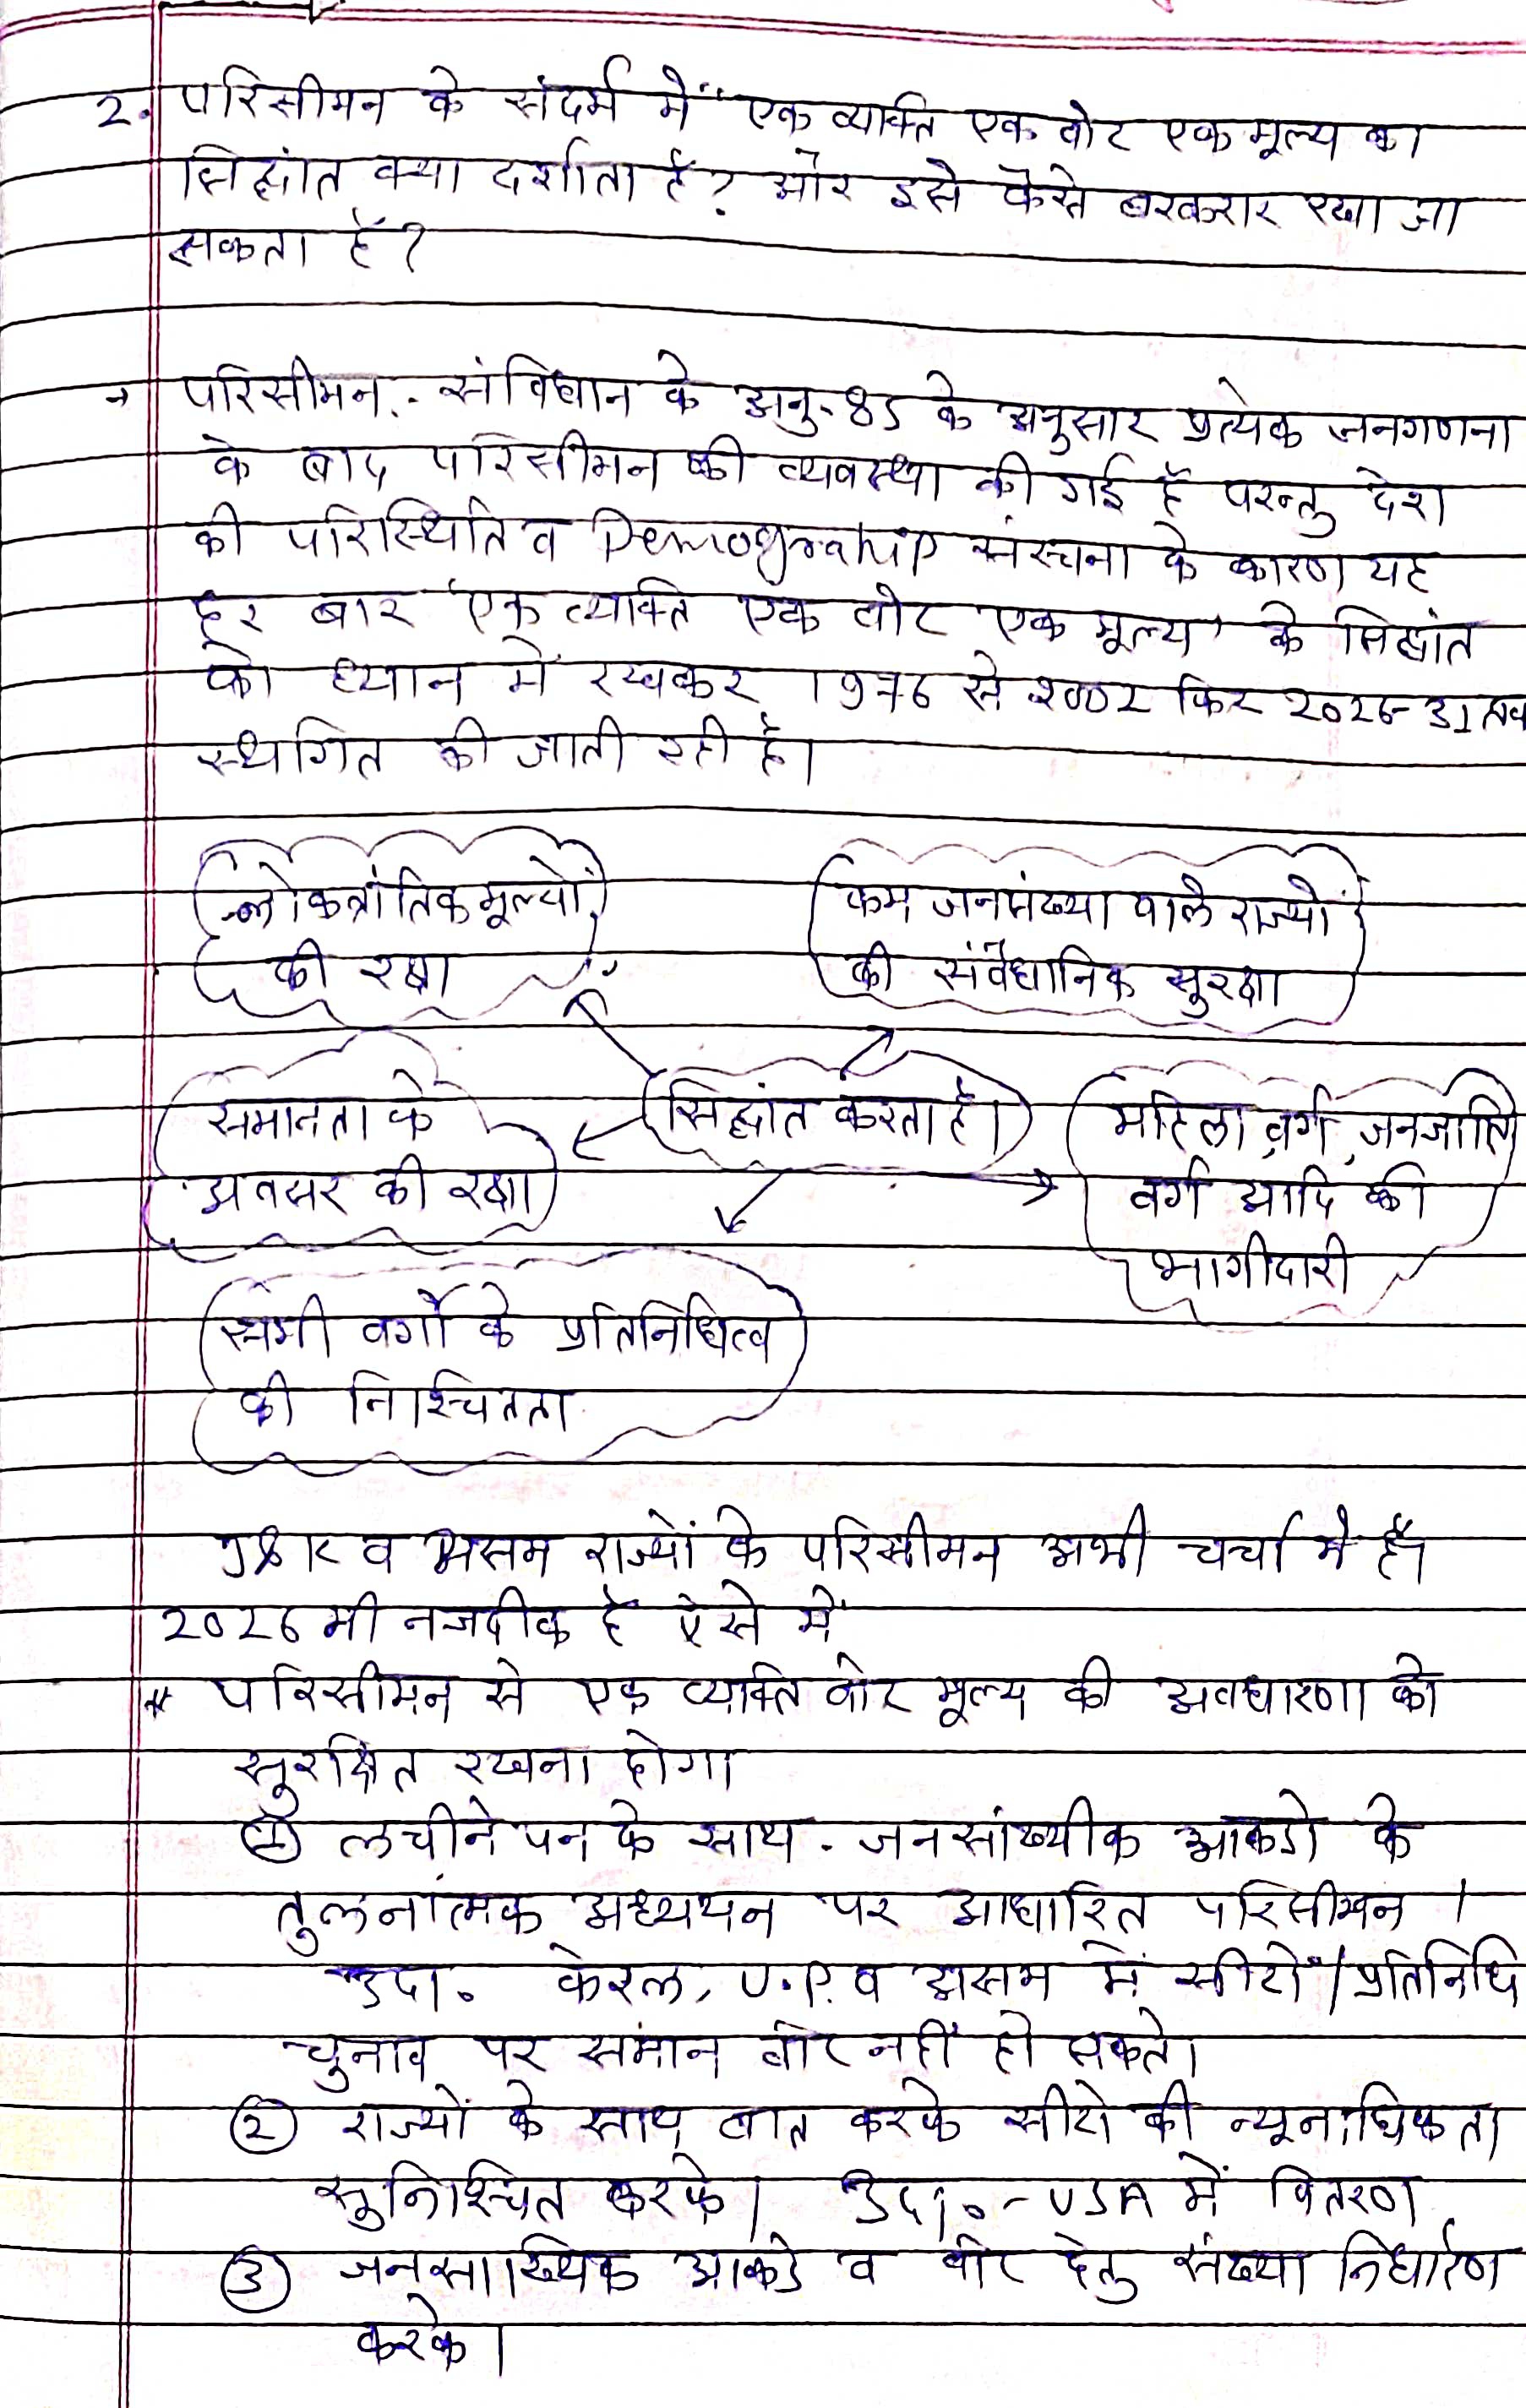 2. परिसीमन के संदर्भ में "एक व्यक्ति एक वोट एक मूल्य का
सिद्धांत क्या दर्शाता है? और इसे कैसे बरकरार रखा जा
सकता है?
→ परिसीमन :- संविधान के अनु- 82 के अनुसार प्रत्येक जनगणना
के बाद परिसीमन की व्यवस्था की गई है परन्तु देश
की परिस्थिति व Demographip संरचना के कारण यह
हर बार 'एक व्यक्ति एक वोट एक मूल्य' के सिद्धांत
को ध्यान में रखकर 1976 से 2002 फिर 2026-31 तक
स्थगित की जाती रही है।
लोकत्रांतिक मूल्यों
की रक्षा
कम जनसंख्या वाले राज्यों
की संवैधानिक सुरक्षा
समानता के
अवसर की रक्षा
सिद्धांत करता है।
महिला वर्ग, जनजाति
वर्ग आदि की
भागीदारी
सभी वर्गों के प्रतिनिधित्व
की निश्चितता
J&K व असम राज्यों के परिसीमन अभी चर्चा मे हैं।
2026 भी नजदीक है ऐसे में
* परिसीमन से एक व्यक्ति वोट मूल्य की अवधारणा को
सुरक्षित रखना होगा
① लचीने पन के साथ - जनसांख्यीक आकडो के
तुलनांत्मक अध्ययन पर आधारित परिसीमन।
उदा. केरल, U.P. व असम में सीटों / प्रतिनिधि
चुनाव पर समान वोट नहीं हो सकते।
② राज्यों के साथ बात करके सीटो की न्यूनाधिकता
सुनिश्चित करके। उदा.- USA में वितरण
③ जनसांख्यिक आकडे व वोट हेतु संख्या निर्धारण
करके।